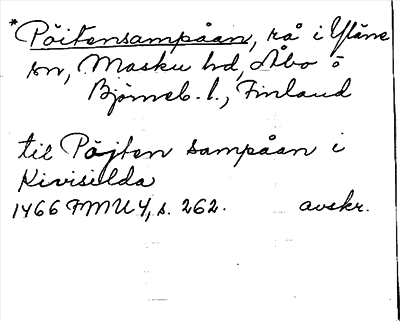 *Pöitensampåan, rå i Yläne
sn, Masku hd, Åbo o
Björneb. l., Finland
til Pöjten sampåan i
Kivisilda
1466 FMU 4, s. 262. avskr.